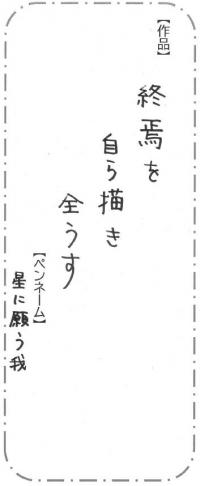 【作品】
終焉を
自ら描き
全うす
【ペンネーム】
星に願う我